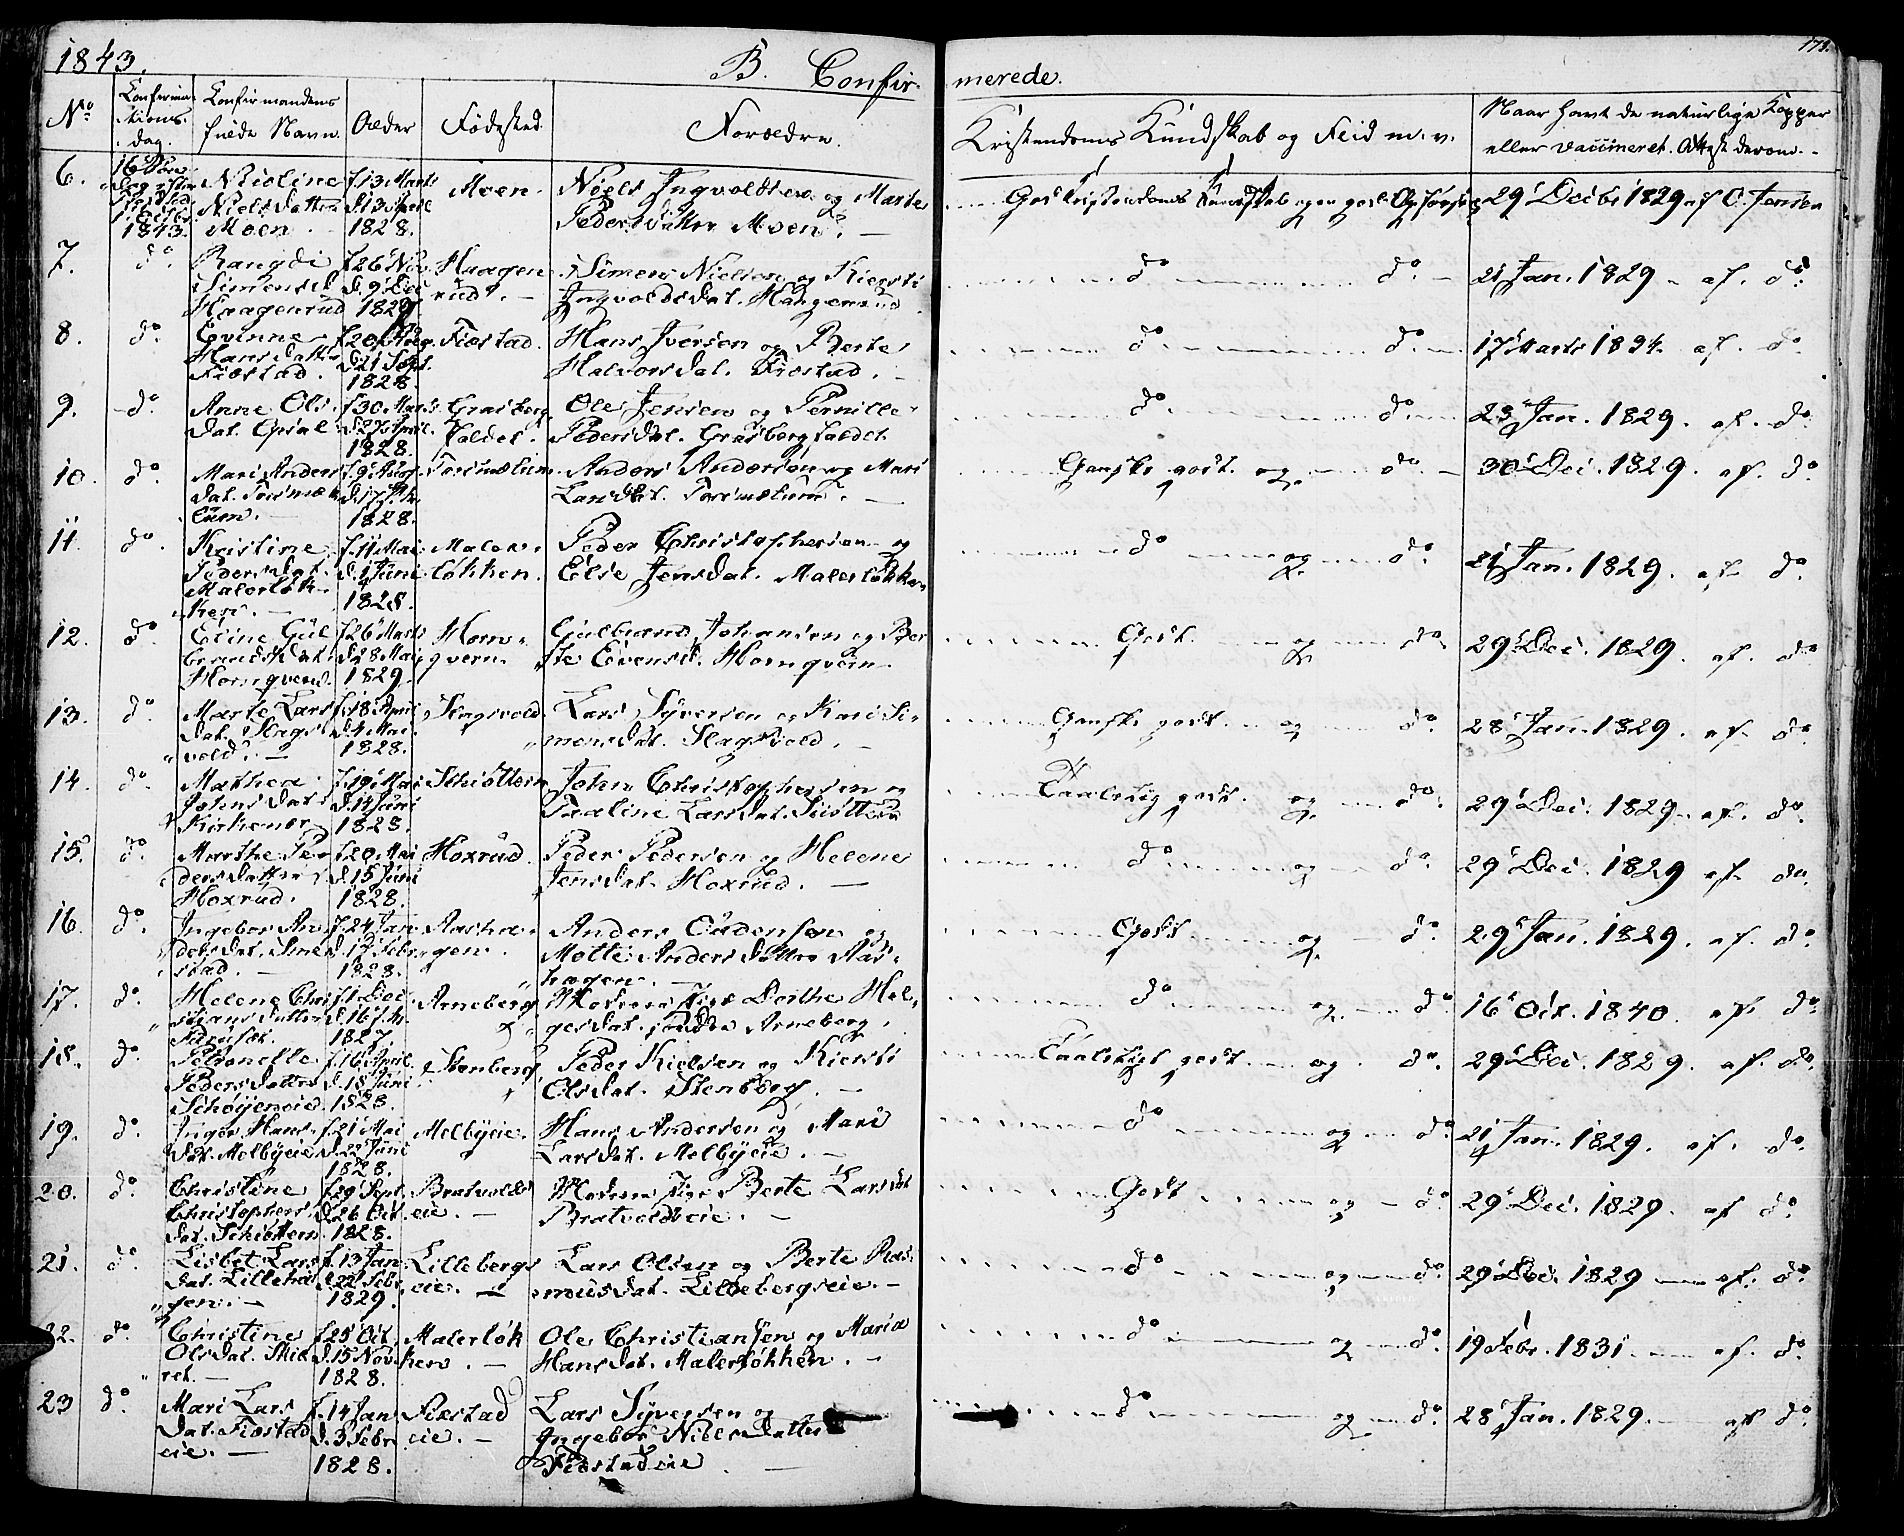 1843.
B. Confir- merede.
171.
No
Confirma-
tions-
dag.
Confirmandens
fulde Navn.
Alder
Fødested.
Forældre.
Kristendoms Kundskab og Flid m. v.
Naar havt de naturlige Kopper
eller vaccineret. Attest derom.
6. 1843. Nicoline Niels Datter Moen. f. 13 Marts d. 13 April 1828. Moen. Niels Ingvoldsen og Marte Peders Datter Moen. God Kristendoms Kundskab og en god Opførsel 29 Decbr 1829 af C. Jensen
7. do. Rangdi Simensd. Haagenrud f. 26 Nov. d. 9 Dec 1829 Haagenrud. Simen Nielsen og Kiersti Ingvoldsdat. Haagenrud do do. 21 Jan. 1829 af. do.
8. do. Evinne Hansdatter Fiæstad. f. 20 Aug. d. 21 Sept. 1828. Fiæstad. Hans Iversen og Berte Halvorsdat. Fiæstad. do do. 17 Marts 1834. af. do.
9. do. Anne Ols dat. Opsal f. 30 Marts d. 27 April. 1828. Grasberg faldet. Ole Jensen og Pernille Pedersdat. Grasbergfaldet do do. 23 Jan. 1829. af. do.
10. do. Mari Anders dat. f. 9 Aug. 1828. Anders Andersen og Mari Larsdat. Ganske godt. og do. 30 Dec. 1829. af. do.
11. do. Kristine Pedersdat. Malerløkken. f. 11 Mai d. 1 Juni 1828. Malerløkken. Peder Christophersen og Else Jensdat. Malerløkken do og do. 21 Jan. 1829. af do.
12. do. Eline Gulbrandsdat. Hornqvern. f. 26 Marts d. 28 Mai 1829. Hornqvern. Gulbrand Johansen og Berte Evensd. Hornqvern. Godt. og do. 29 Dec. 1829. af. do
13. do. Marte Lars dat. Slagsvold. f. 18 April d. 4 Mai 1828. Slagsvold. Lars Syversen og Kari Simensdat. Slagsvold. Ganske godt. og do. 28 Jan. 1829. af. do.
14. do. Mathea Johns dat. Kirkenær f. 19 Mai d. 14 Juni 1828. Schiøttern John Christophersen og Pauline Larsdat. Taalelig godt. og do. 29 Dec. 1829. af. do.
15. do. Marthe Pedersdatter Hoxrud. f. 20 Mai d. 15 Juni 1828. Hoxrud. Peder Pedersen og Helene Jensdat. Hoxrud. do og do. 29 Dec. 1829 af. do.
16. do. Ingebor Andersdat. Smestad. f. 24 Jan 1828. Aashagen. Anders og Anders Datter Aashagen. Godt og do. 29 Jan. 1829. af. do.
17. do. Helene Christians Datter f. 1 Dec. 1827. Arneberg Moderen Pige Dorthe Helgesdat. Arneberg. do og do 16 Oct. 1840. af. do.
18. do. Petronelle Peders Datter Schøyeneie. f. 16 April. d. 15 Juni 1828. Stenberg Peder Kielsen og Kiersti Olsdat. Stenberg. Taaleligt godt og do. 29 Dec. 1829. af. do.
19. do. Inger Hans dat. Melbyeie f. 21 Mai d. 22 Juni 1828. Melbyeie. Hans Andersen og Mari Larsdat. Melbyeie. do og do. 21 Jan. 1829. af. do.
20. do. Christine Christophers dat. Schiøttern. f. 29 Sept. d. 26 Oct. 1828. Bratvolds eie. Moderen Pige Berte Larsdat Bratvoldseie. Godt og do. 29 Dec. 1829. af do.
21. do. Lisbet Lars dat. f. 13 Jan d. 22 Febr. 1829. Lillebergs eie. Lars Olsen og Berte Rasmusdat. Lillebergseie. do og do. 29 Dec. 1829 af. do.
22. do. Christine Olsdat. f. 25 Oct. d. 15 Nov. 1828. Malerløkken. Ole Christiansen og Maria Hansdat. Malerløkken. do og do. 19 Febr. 1831. af. do.
23 do. Mari Lars dat. Fiæstad eie. f. 14 Jan d. 3 Febr 1828. Fiæstad eie. Lars Syversen og Ingebor Niels Datter Fiæstadeie do og do. 28 Jan. 1829. af do.